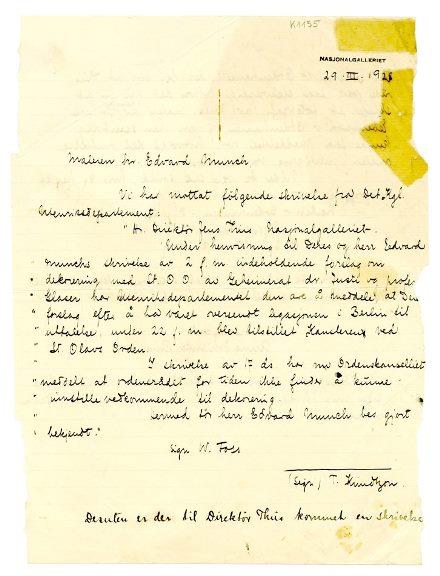 K1195
NASJONALGALLERIET
29. III. 1928
Maleren hr. Edvard Munch
Vi har mottat følgende skrivelse fra Det Kgl.
Utenriksdepartement:
"Hr. Direktør Jens Thiis Nasjonalgalleriet.
Under henvisning til Deres og herr Edvard
Munchs skrivelse av 2 f.m. indeholdende forslag om
" dekorering med St. O. O. av Geheimerat dr. Justi og profes
" Glaser har Utenriksdepartementet den ære å meddele, at Deres
" forslag efter å ha været oversendt Legasjonen i Berlin til
" uttalelse, under 22 f.m. blev tilstillet Kansleren ved
" St. Olavs Orden.
" I skrivelse av ds. har nu Ordenskanselliet
" meddelt at ordensrådet for tiden ikke finder å kunne
" innstille vedkommende til dekorering.
" for herr Edvard Munch bes gjort
" bekjendt."
sign W. Foss
(sign) T. Knudtzon.
Desuten er der til Direktør Thiis kommet en skrivelse